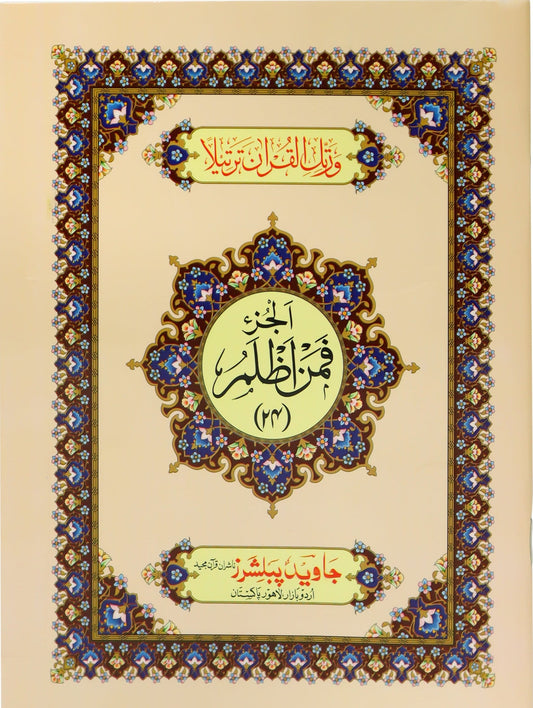 وَرَتِّلِ الْقُرْاٰنَ تَرْتِیْلًا
اَلْجُزْءُ
فَمَنْ اَظْلَمُ
(۲۴)
جاوید پبلشرز ناشران قرآن مجید
اردو بازار لاھور پاکستان